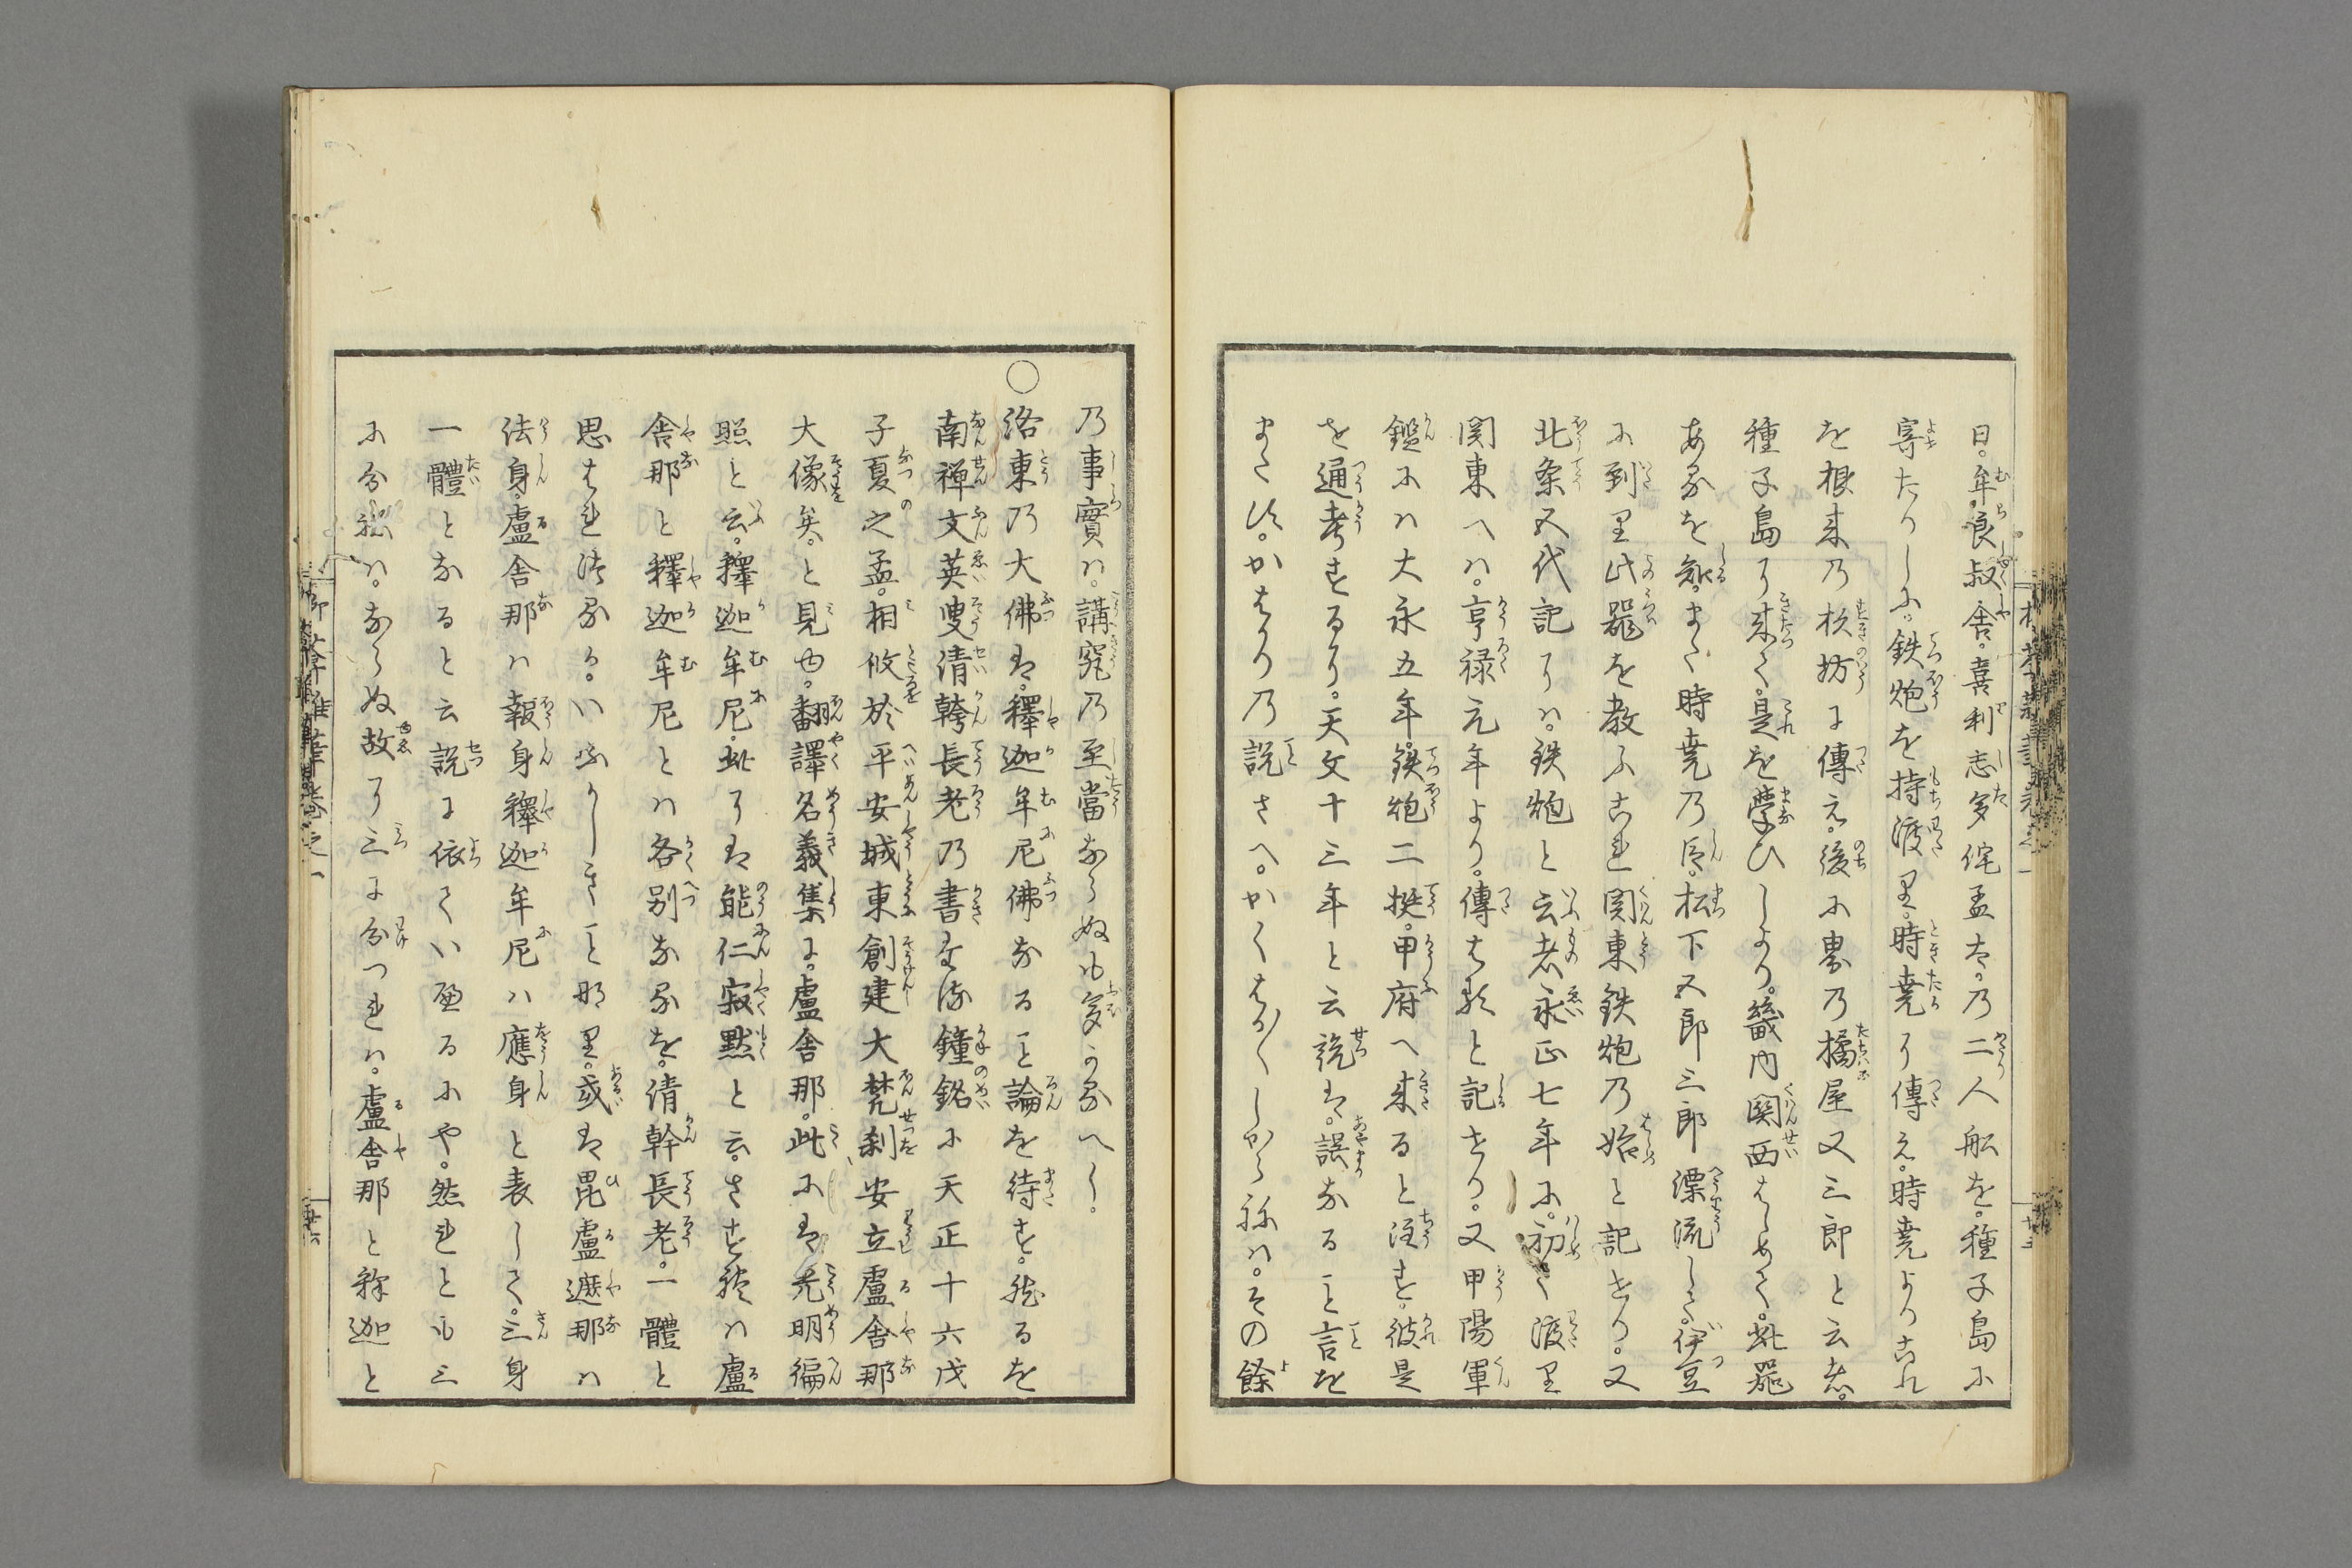 日。牟良叔舎。喜利志多佗孟太。乃二人舩を。種子島に
寄たりしに。鉄炮を持渡里。時尭に傳え。時尭よりこれ
を根来乃杉坊に傳え。後に界乃橘屋又三郎と云者。
種子島に来て。是を学ひしより。畿内関西はじめて。此器
あるを知。また時尭乃臣。松下五郎三郎漂流して。伊豆
に到里此器を教ふこれ関東鉄炮乃始と記せり。又
北条五代記には。鉄炮と云者永正七年に。初て渡里
関東へは。亨禄元年より。傳はると記せり。又甲陽軍
鑑には大永五年。鉄炮二挺。甲府へ来ると注す。彼是
を通考するに。天文十三年と云説は。誤なること言を
またず。かはりの説さへ。かくはかくしからねは。その餘
乃事實は。講究乃至當ならぬも多かるへし。
○洛東乃大佛は。釋迦牟尼佛なること論を待ず。然るを
南禅文英叟清韓長老乃書たる鐘銘に天正十六戊
子夏之孟。相攸於平安城東創建大梵刹安立盧舎那
大像矣。と見ゆ。翻譯名義集に。盧舎那。此には光明徧
照と云。釋迦牟尼。此には能仁寂黙と云。さすれは盧
舎那と釋迦牟尼とは各別なるを。清幹長老。一體と
思はれけるか。いぶかしきこと那里。或は毘盧遮那は
法身。盧舎那は報身釋迦牟尼は應身と表して。三身
一體となると云説に依てい歴るにや。然れとも三
に分症は。ならぬ故に三に分つれは。盧舎那と釈迦と